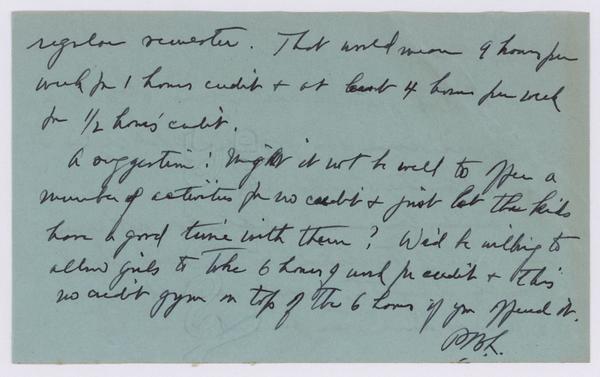 regular semester. That would mean 9 hours per
week for 1 hours credit & at least 4 hours per week
for 1/2 hours' credit.
A suggestion! Might it not be well to offer a
number of activities for no credit & just let the kids
have a good time with them? We'd be willing to
allow girls to take 6 hours of work for credit & this
no credit gym on top of the 6 hours if you offered it.
P.B.L.